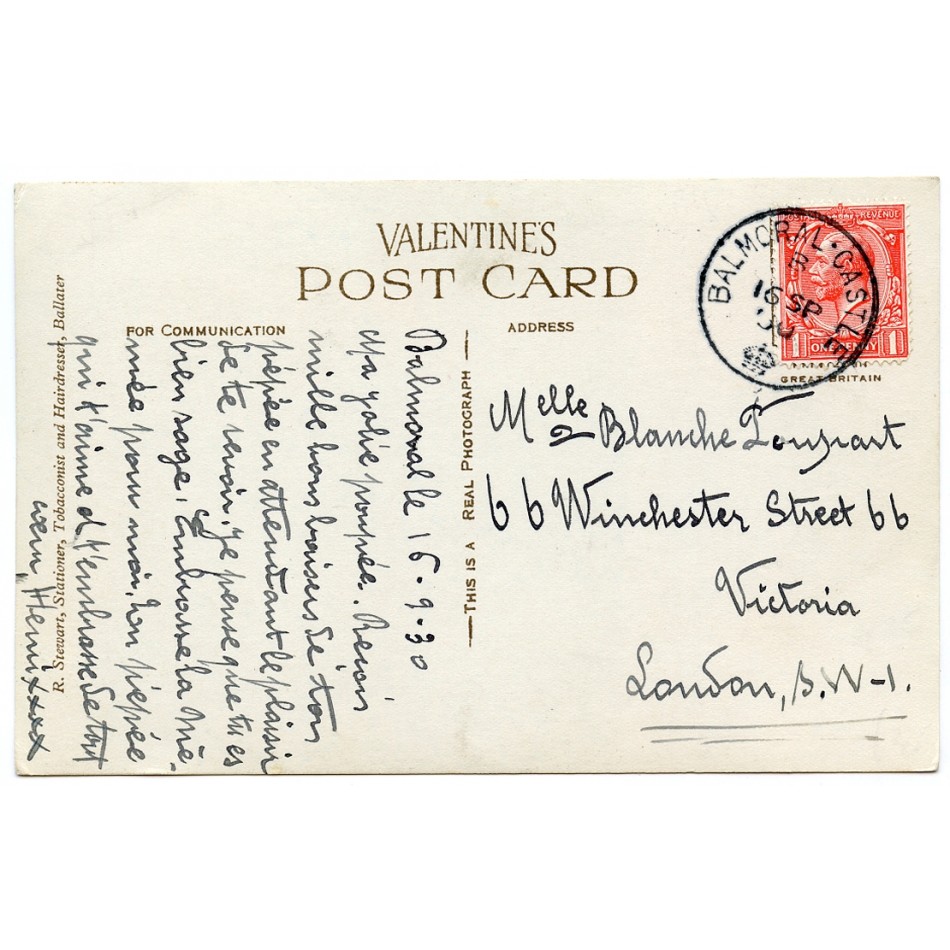 VALENTINE'S
POST CARD
FOR COMMUNICATION
ADDRESS
BALMORAL·CASTLE
16 SP
30
POSTAGE REVENUE
1 ONE PENNY 1
GREAT BRITAIN
R. Stewart, Stationer, Tobacconist and Hairdresser, Ballater
THIS IS A REAL PHOTOGRAPH
Balmoral le 16.9.30
Ma jolie poupée. Reçois
mille bons baisers de ton
pépée en attendant le plaisir
de te revoir. Je pense que tu es
bien sage. Embrasse la mé-
mée pour moi. Ton pépée
qui t'aime et t'embrasse de tout
Henri xxxx
Melle Blanche
66 Winchester Street 66
Victoria
London, S.W-1.